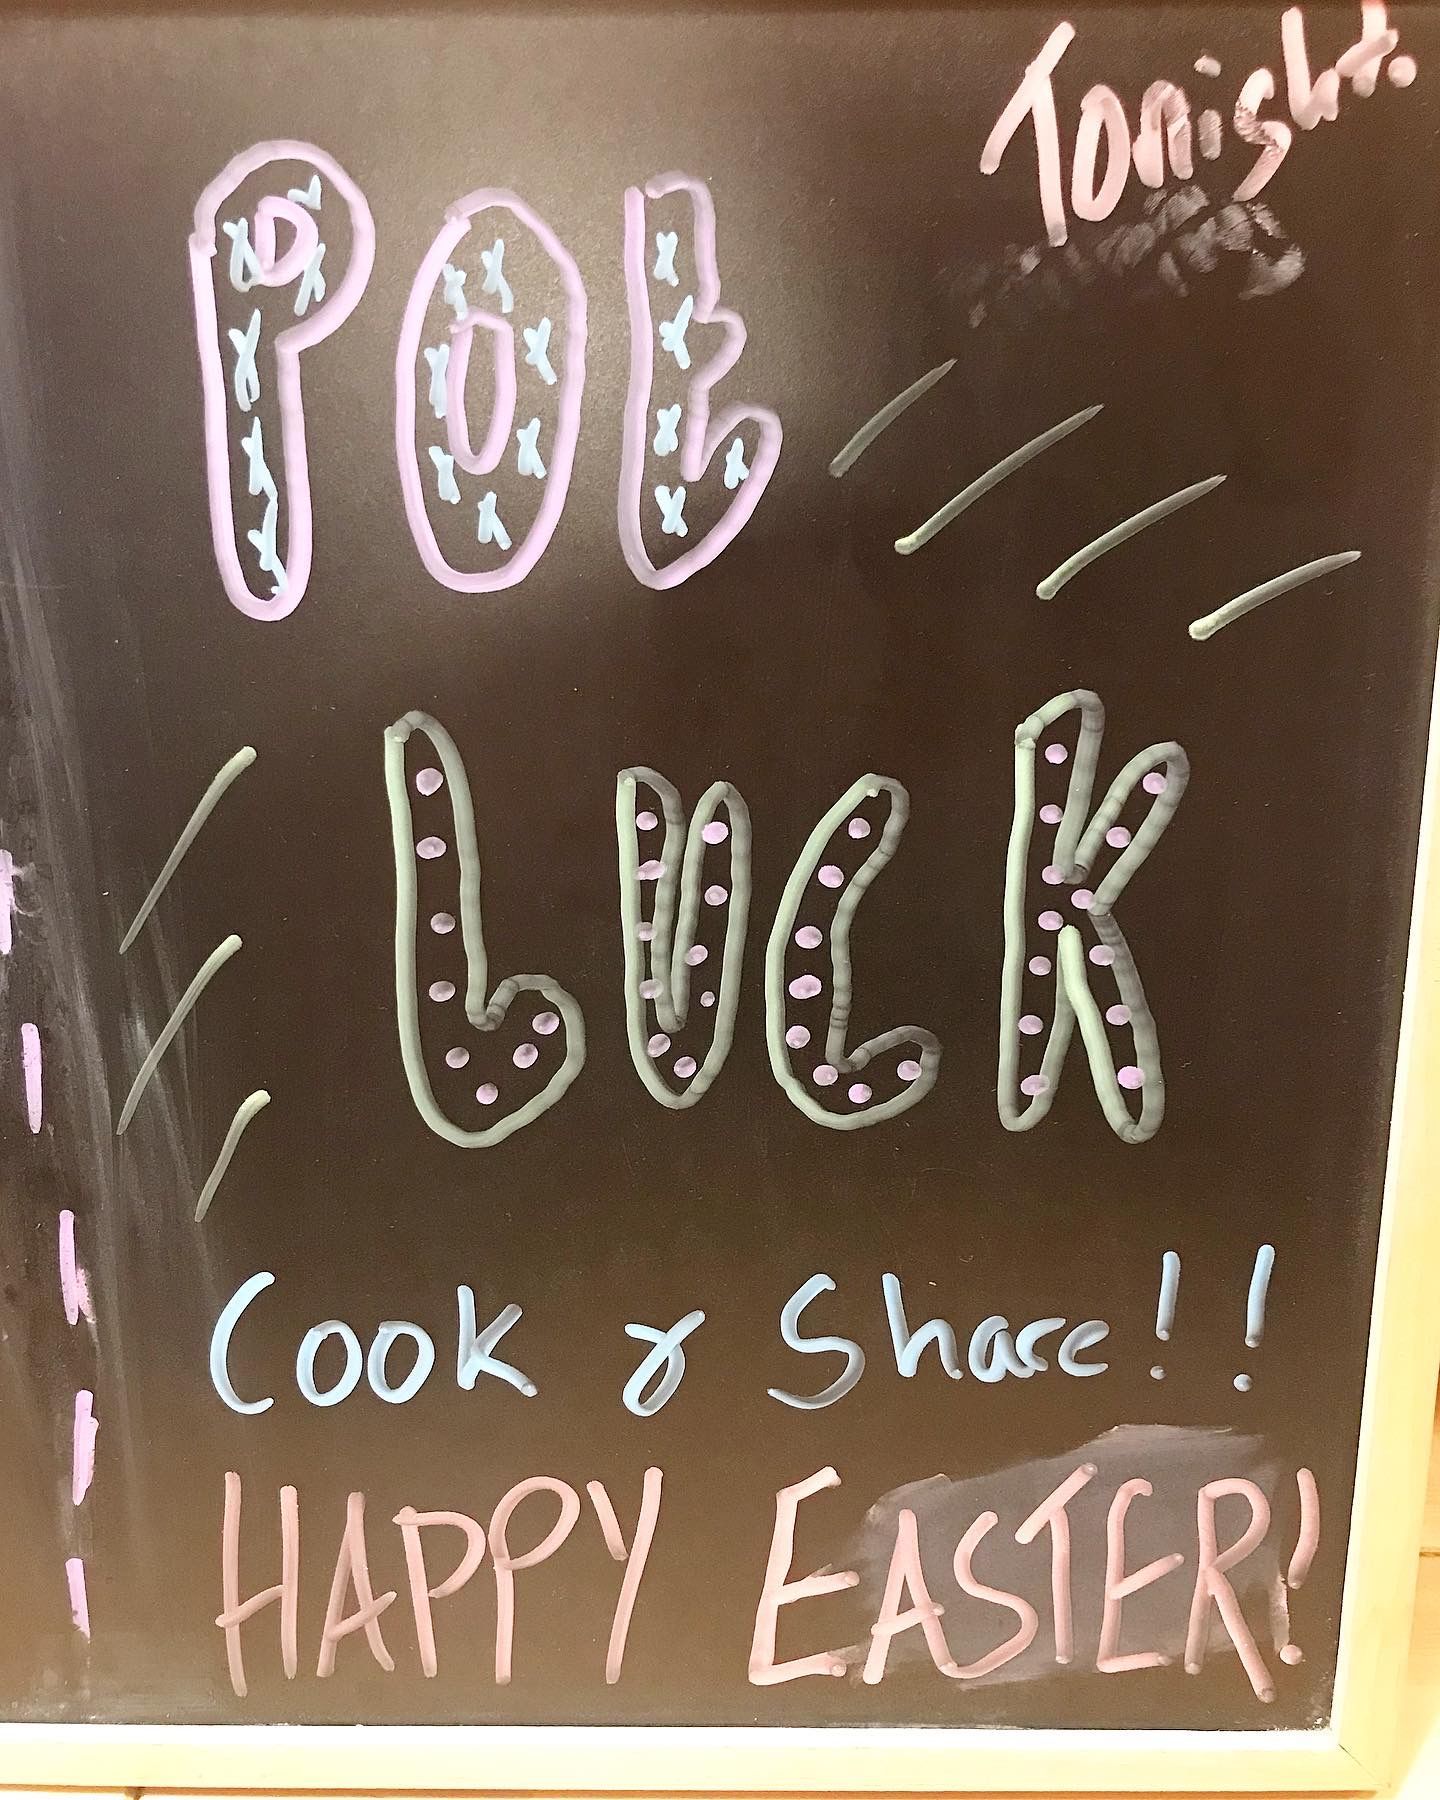 Tonight.
POt
LUCK
Cook & Share!!
HAPPY EASTER!